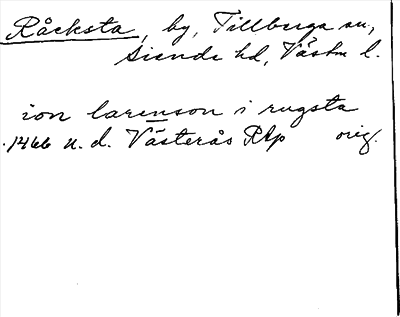 Råcksta, by, Tillberga sn,
Siende hd, Västm l.
ion larenson i rugsta
1466 u. d. Västerås RAp orig.